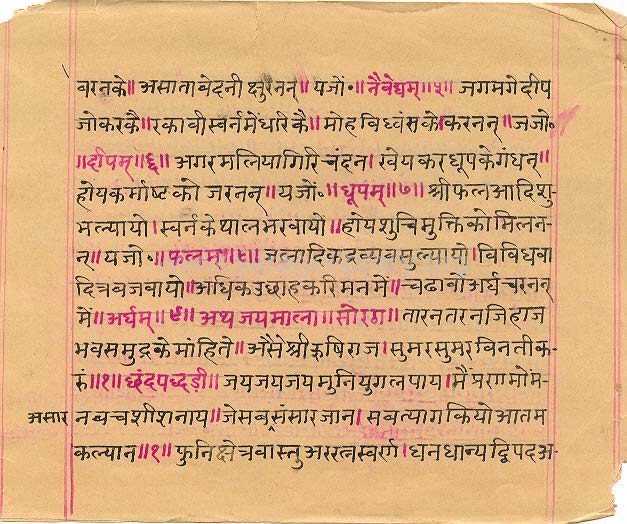 बरनके॥ असाता वेदनी क्षुरननं॥ यजों॰॥ नैवेद्यम्॥५॥ जगमगे दीप
जोकरकै॥ रकावी स्वर्नमें धरिकै॥ मोह विध्वंसके। करननं॥ जजो॰
॥दीपम्॥६॥ अगर मलियागिरि चंदन। खेय कर धूपके गंधन्॥
होय कर्माष्ट को जरननं॥ यजों॰॥ धूपम्॥७॥ श्रीफल आदि शु
भ ल्यायो। स्वर्नके थाल भरवायो॥ होय शुचि मुक्ति को मिलन-
नं॥ यजो॰॥ फलम्॥८॥ जलादिक द्रव्य वसु ल्यायो। विविध वा
दित्र बजवायो॥ अधिक उछाह करि मनमें॥ चढावों अर्घ चरनन
में॥ अर्घम्॥९॥ अथ जयमाला॥ सोरठा॥ तारन तरन जिहाज
भव समुद्रके मांहिते॥ अैसे श्री ऋषिराज। सुमर सुमर विनती क-
रूं॥१॥ छंद पद्धड़ी॥ जय जय जय मुनि युगल पाय। मैं प्रणमो म-
असार नवच शीश नाय। जे सब संसार जान। सब त्याग कियो आतम
कल्यान॥१॥ फुनि क्षेत्र वास्तु अरु रत्न स्वर्ण। धन धान्य द्विपद अ-